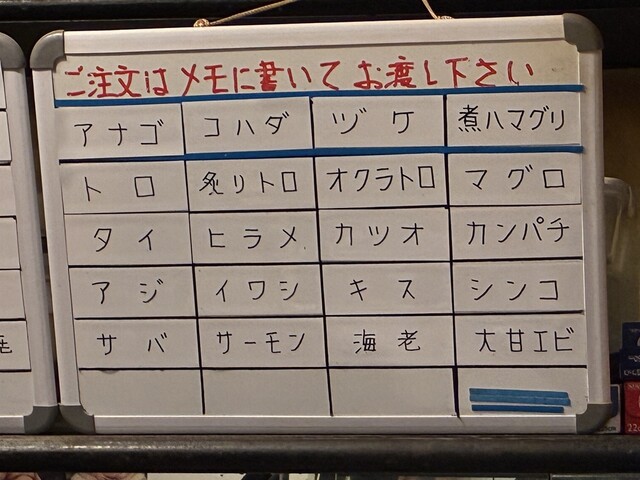 ご注文はメモに書いてお渡し下さい
アナゴ コハダ ヅケ 煮ハマグリ
トロ 炙りトロ オクラトロ マグロ
タイ ヒラメ カツオ カンパチ
アジ イワシ キス シンコ
サバ サーモン 海老 大甘エビ